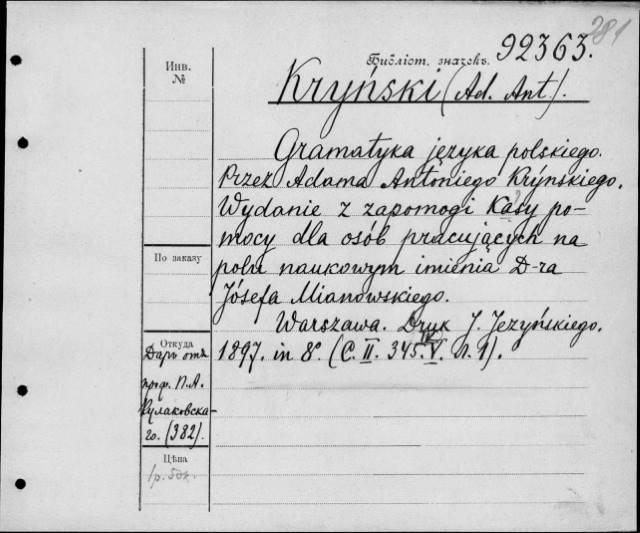 281
Библіот. значекъ. 92363.
Инв.
№
Kryński (Ad. Ant).
Gramatyka języka polskiego.
Przez Adama Antoniego Krýnskiego.
Wydanie z zapomogi Kasy po-
mocy dla osób pracujących na
polu naukowym imienia D-ra
Jósefa Mianowskiego.
Warszawa. Druk J. Jezyńskiego.
1897. in 8°. (C. II. 345. V. п. 1).
По заказу
Откуда
Даръ отъ
проф. П. А.
Кулаковска-
го. (382).
Цѣна
1 р. 50 к.